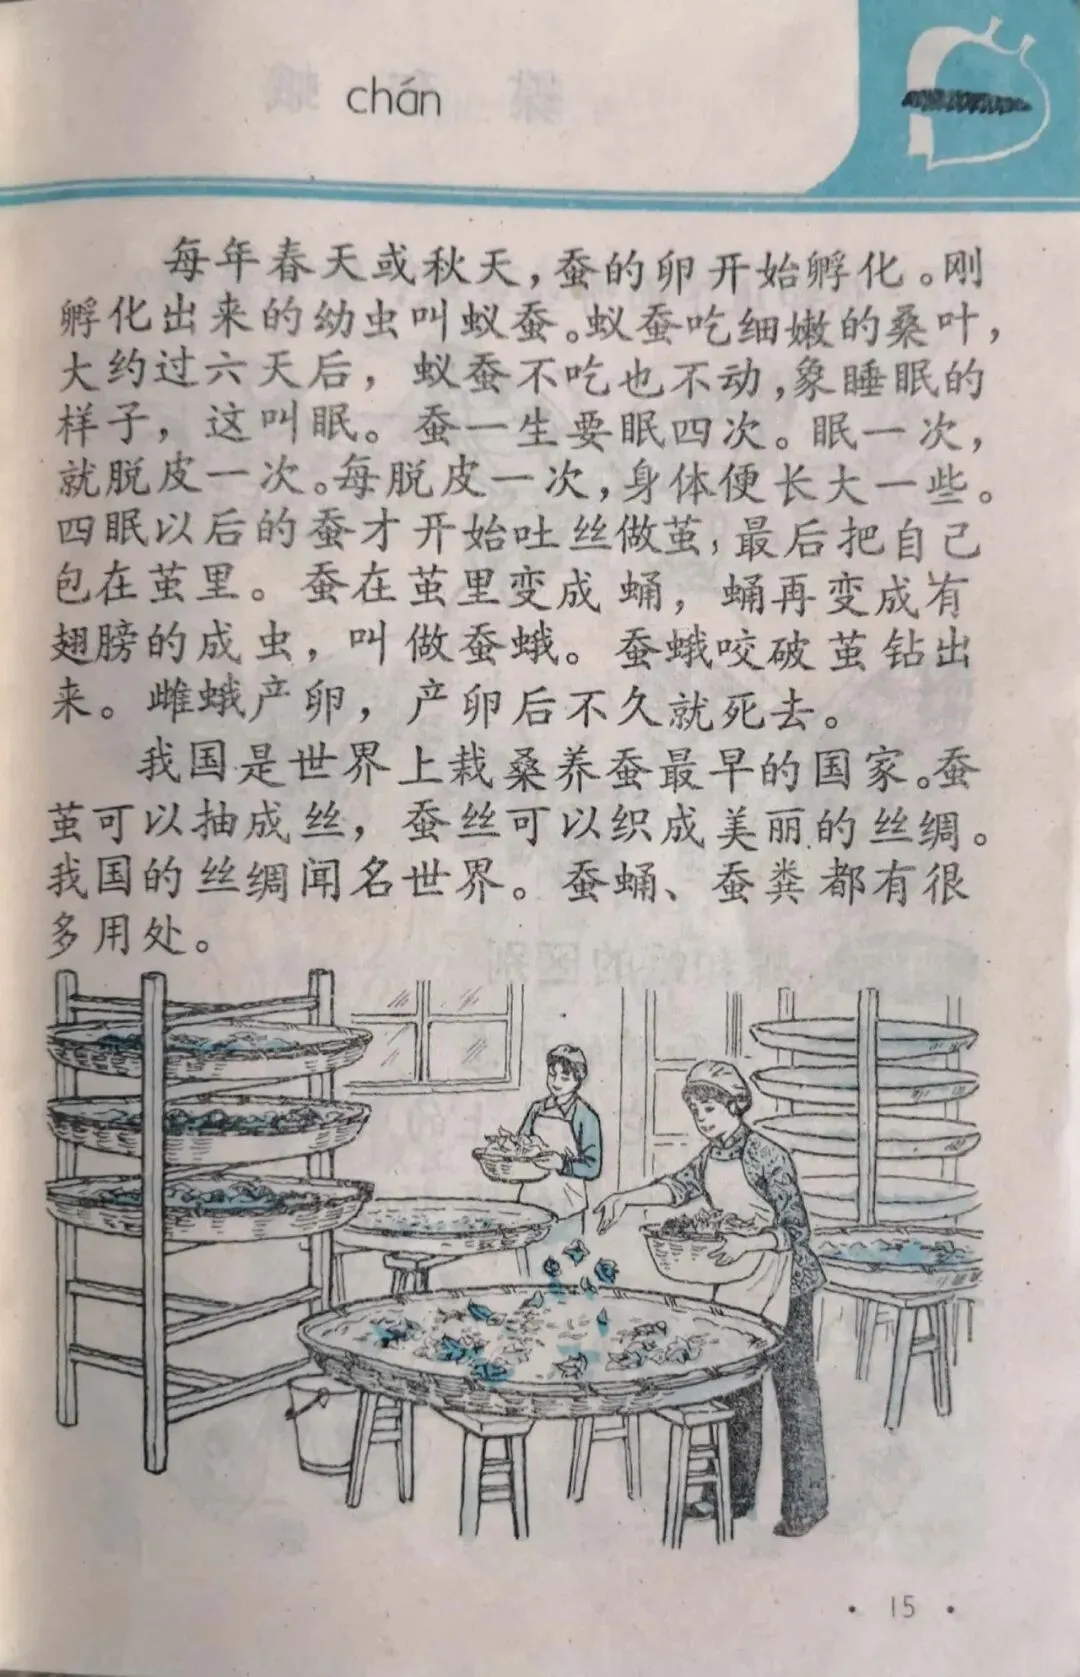 chán
每年春天或秋天，蚕的卵开始孵化。刚
孵化出来的幼虫叫蚁蚕。蚁蚕吃细嫩的桑叶，
大约过六天后，蚁蚕不吃也不动，象睡眠的
样子，这叫眠。蚕一生要眠四次。眠一次，
就脱皮一次。每脱皮一次，身体便长大一些。
四眠以后的蚕才开始吐丝做茧，最后把自己
包在茧里。蚕在茧里变成蛹，蛹再变成有
翅膀的成虫，叫做蚕蛾。蚕蛾咬破茧钻出
来。雌蛾产卵，产卵后不久就死去。
我国是世界上栽桑养蚕最早的国家。蚕
茧可以抽成丝，蚕丝可以织成美丽的丝绸。
我国的丝绸闻名世界。蚕蛹、蚕粪都有很
多用处。
· 15 ·